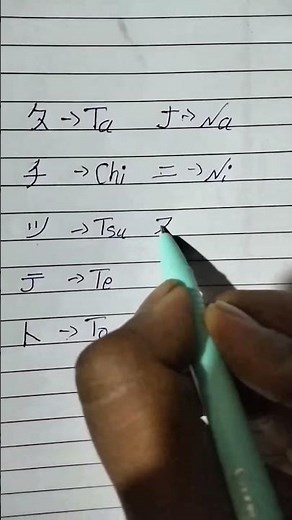 タ → Ta ナ → Na
チ → Chi ニ → Ni
ツ → Tsu ヌ
テ → Te
ト → To